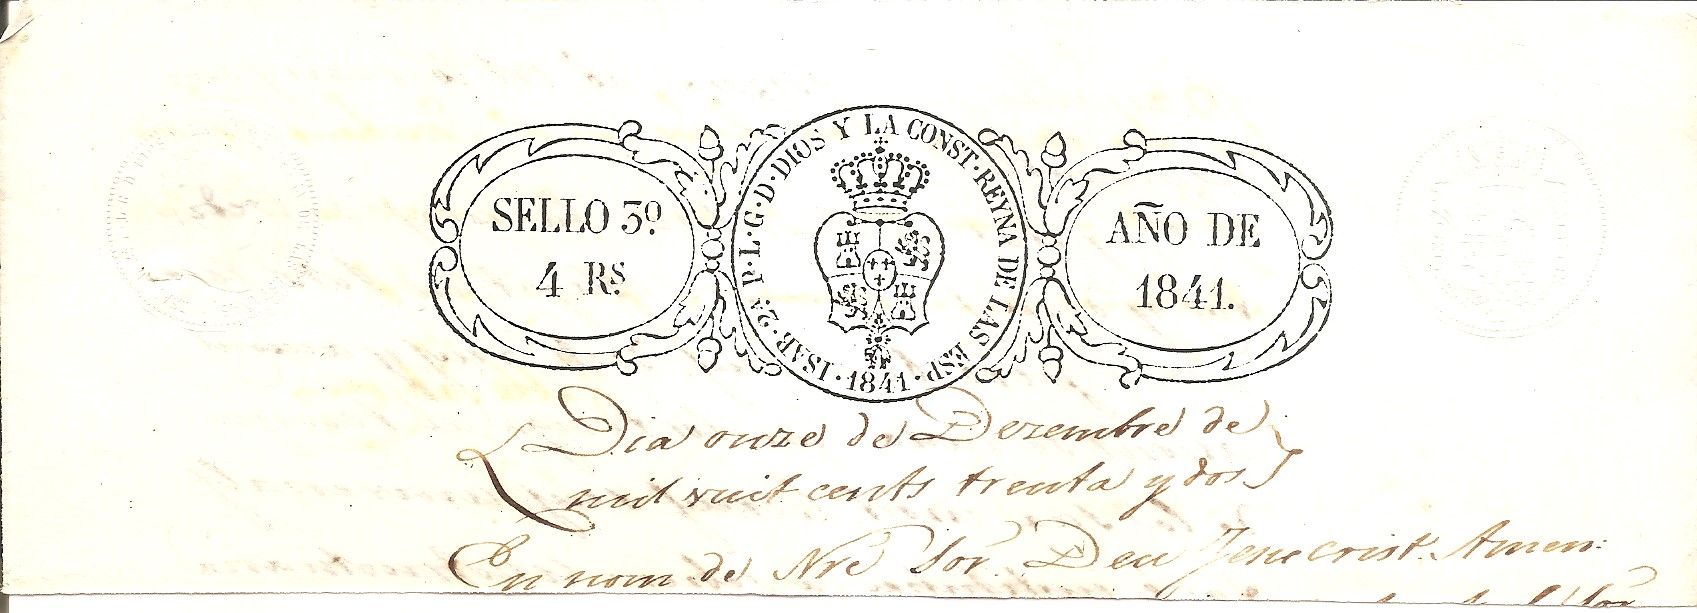 ISAB. 2ª P. L. G. D. DIOS Y LA CONST. REYNA DE LAS ESP. 1841.
SELLO 3º
4 Rs
AÑO DE
1841.
Dia onze de Dezembre de
mil vuit cents trenta y dos
En nom de Nre Sor Deu Jesucrist. Amen: